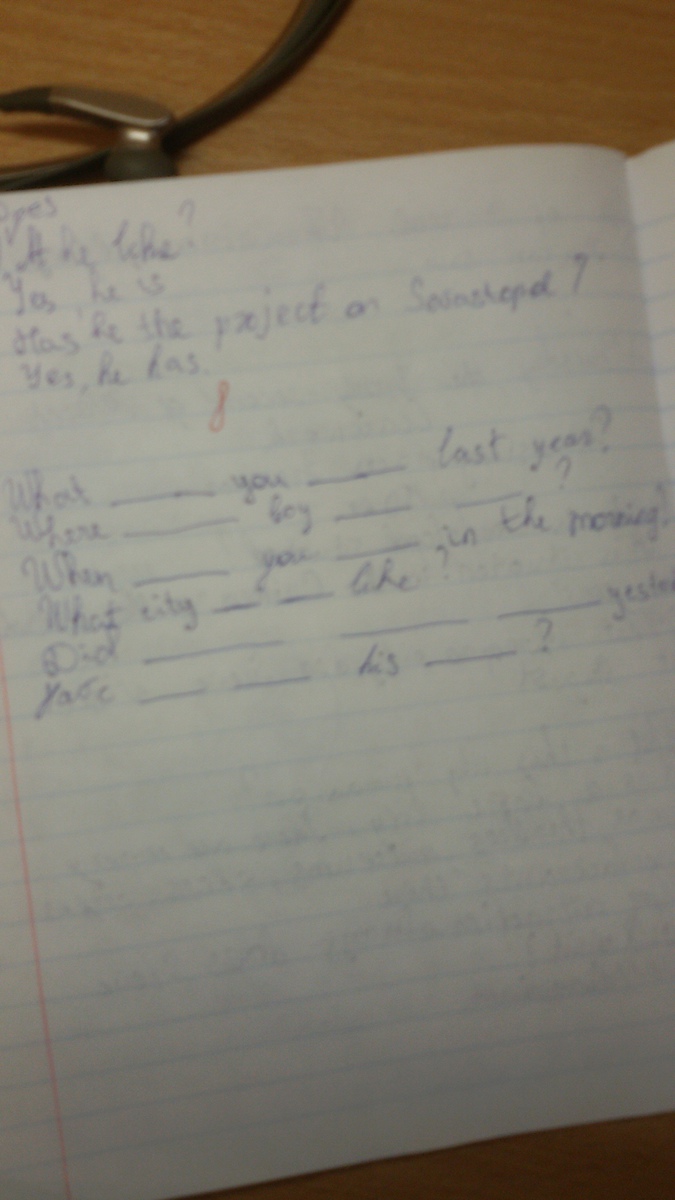 he like?
Yes, he is
Has he the project on Sevastopol?
Yes, he has.
8
What ____ you ____ last year?
Where ____ boy ____ ____?
When ____ you ____ in the morning?
What city ____ ____ like?
Did ____ ____ ____
____ ____ his ____?